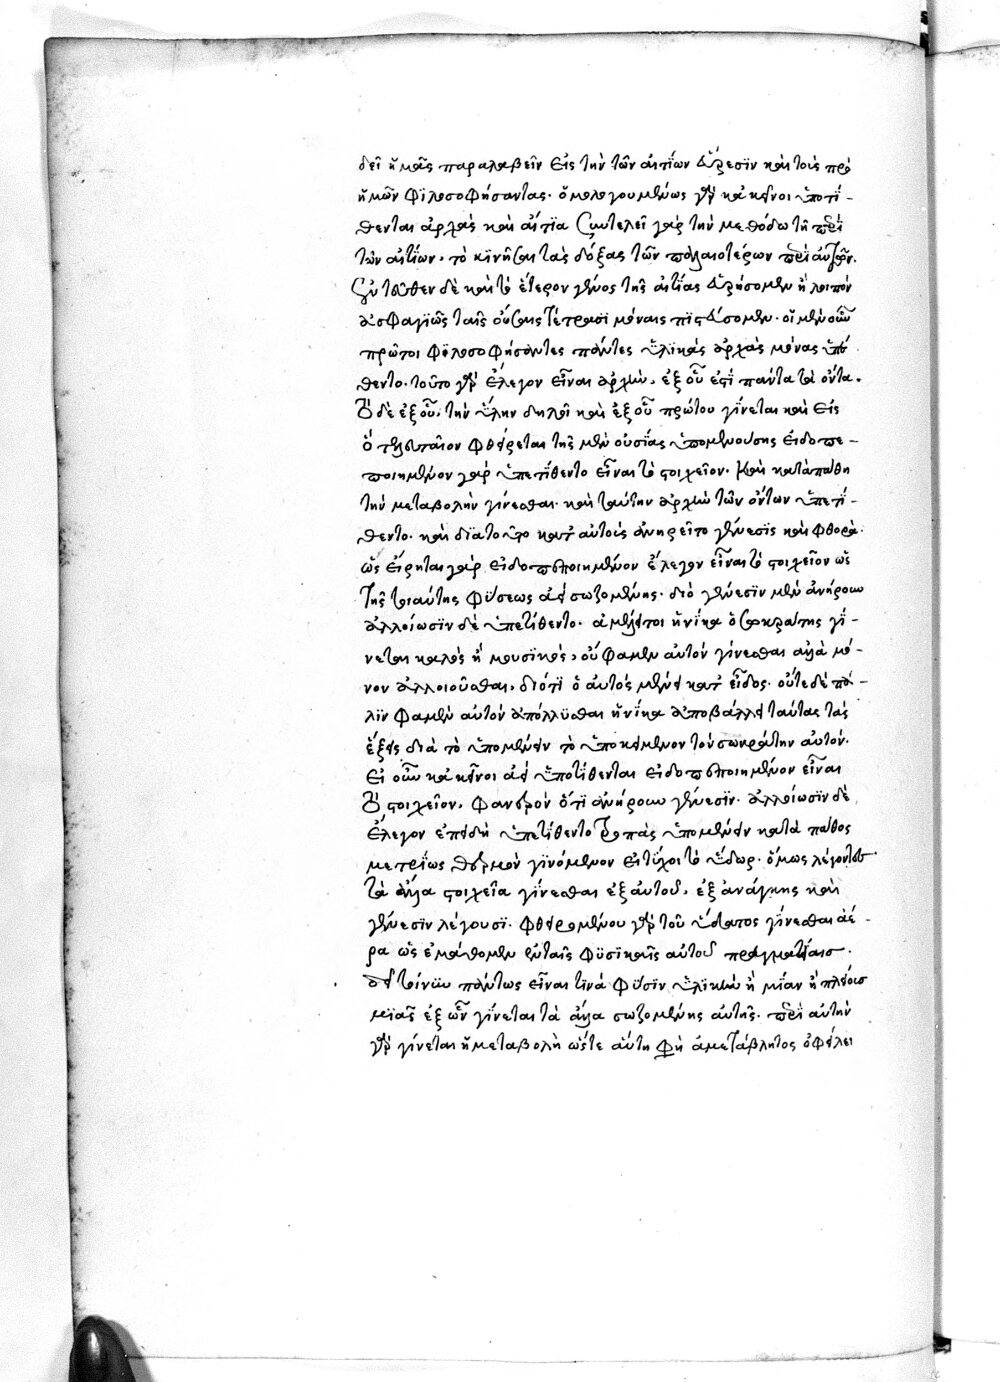 δεῖ ἡμᾶς παραλαβεῖν εἰς τὴν τῶν αἰτίων εὕρεσϊν καὶ τοὺς πρὸ
ἡμῶν φϊλοσοφήσαντας· ὁμολογουμένως γὰρ κἀκεῖνοι ὑποτί-
θενται ἀρχὰς καὶ αἴτϊα συντελεῖ γὰρ τὴν μεθόδω τῆ περὶ
τῶν αἰτίων, τὸ κϊνῆσαι τὰς δόξας τῶν παλαιοτέρων περὶ αὐτῶν.
ἐντεῦθεν δὲ καὶ τὸ ἕτερον γένος τῆς αἰτίας εὑρήσομεν ἢ λοιπὸν
ἀσφαλῶς ταῖς οὔσαις τέτρασϊ μόναις πϊστεύσομεν· οἱ μὲν οὖν
πρῶτοι φϊλοσοφήσαντες πάντες ὑλϊκὰς ἀρχὰς μόνας ὑπέ
θεντο· τοῦτο γὰρ ἔλεγον εἶναι ἀρχὴν, ἐξ οὗ ἐστὶ πάντα τὰ ὄντα.
τὸ δὲ ἐξ οὗ, τὴν ὕλην δηλοῖ καὶ ἐξ οὗ πρώτου γίνεται καὶ εἰς
ὃ τελευταῖον φθείρεται τῆς μὲν οὐσίας ὑπομενούσης εἰδοπε-
ποιημένον γὰρ ὑπετίθεντο εἶναι τὸ στοιχεῖον· καὶ κατὰ πάθη
τὴν μεταβολὴν γίνεσθαι· καὶ ταύτην ἀρχὴν τῶν ὄντων ὑπετί-
θεντο· καὶ διὰ τοῦτο κατ' αὐτοὺς ἀνηρεῖτο γένεσϊς καὶ φθορὰ·
ὡς εἴρηται γὰρ εἰδοπεποιημένον ἔλεγον εἶναι τὸ στοιχεῖον ὡς
τῆς τοιαύτης φύσεως ἀεὶ σωζομένης· διὸ γένεσϊν μὲν ἀνήρουν
ἀλλοίωσϊν δὲ ὑπετίθεντο· ἀμέλει τοι ἡνίκα ὁ σωκράτης γί-
νεται καλὸς ἢ μουσϊκὸς, οὔ φαμεν αὐτὸν γίνεσθαι ἀλλὰ μό-
νον ἀλλοιοῦσθαι, διότϊ ὁ αὐτὸς μένει κατ' εἶδος· οὔτε δὲ πά-
λϊν φαμὲν αὐτὸν ἀπόλλυσθαι ἡνίκα ἀποβάλλει ταύτας τὰς
ἕξεις διὰ τὸ ὑπομένειν τὸ ὑποκείμενον τὸν σωκράτην αὐτὸν·
εἰ οὖν κἀκεῖνοι ἀεὶ ὑποτίθενται εἰδοπεποιημένον εἶναι
τὸ στοιχεῖον, φανερὸν ὅτϊ ἀνήρουν γένεσϊν· ἀλλοίωσϊν δὲ
ἔλεγον ἐπειδὴ ὑπετίθεντο τροπὰς ὑπομένειν κατὰ πάθος
μετρίως θερμὸν γϊνόμενον εἰ τύχοι τὸ ὕδωρ· ὅμως λέγοντες
τὰ ἄλλα στοιχεῖα γίνεσθαι ἐξ αὐτοῦ, ἐξ ἀνάγκης καὶ
γένεσϊν λέγουσϊ· φθειρομένου γὰρ τοῦ ὕδατος γίνεσθαι ἀέ-
ρα ὡς ἐμάθομεν ἐν ταῖς φϋσϊκαῖς αὐτοῦ πραγματείαις·
δεῖ τοίνυν πάντως εἶναι τϊνὰ φύσϊν ὑλϊκὴν ἢ μίαν ἢ πλείους
μϊᾶς ἐξ ὧν γίνεται τὰ ἄλλα σωζομένης αὐτῆς· περὶ αὐτὴν
γὰρ γίνεται ἡ μεταβολὴ ὥστε αὐτὴ φησὶ ἀμετάβλητος ὀφείλει